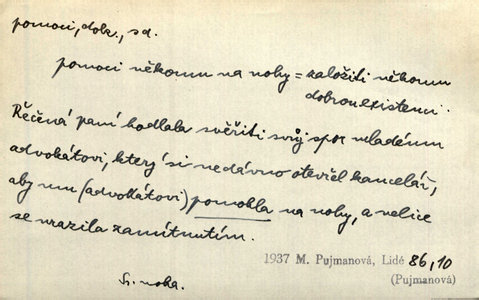 pomoci, dok., sd.
pomoci někomu na nohy = založiti někomu
dobrou existenci..
Řečená paní hodlala svěřiti svůj spor mladému
advokátovi, který si nedávno otevřel kancelář,
aby mu (advokátovi) pomohla na nohy, a velice
se urazila zamítnutím.
1937 M. Pujmanová, Lidé 86,10
(Pujmanová)
Sr. noha.